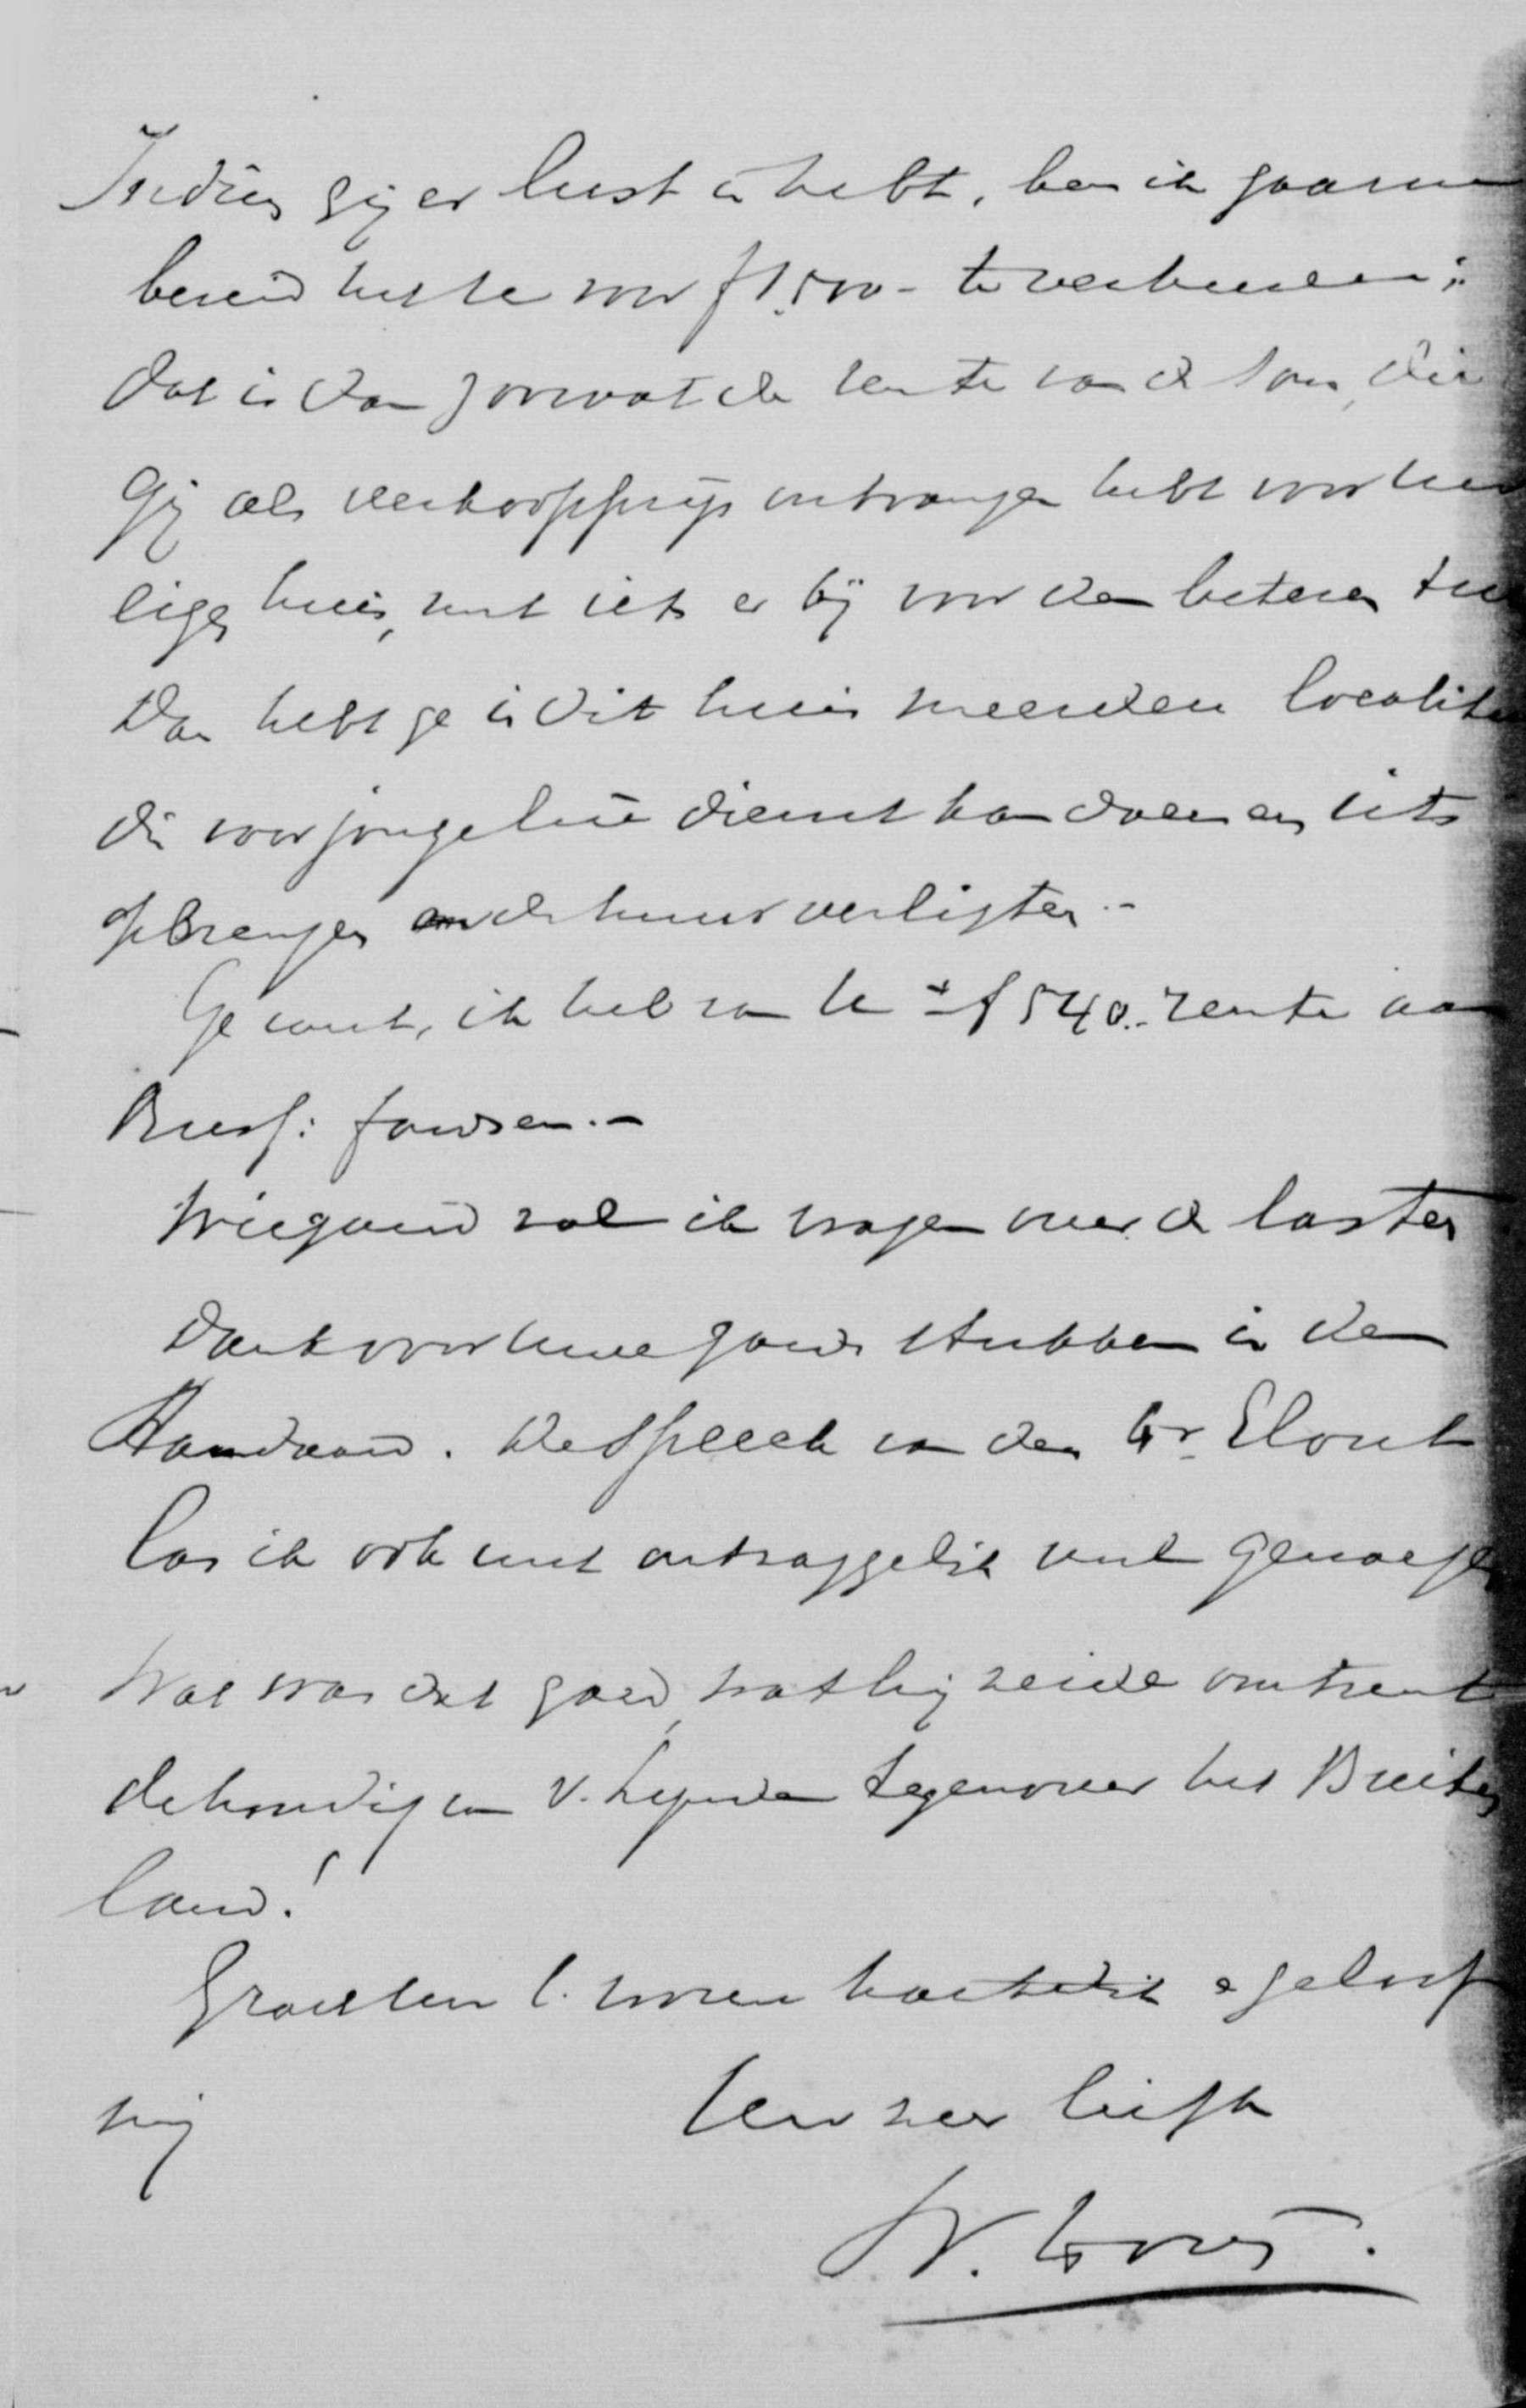 Indien gij er lust in hebt, ben ik gaarne
bereid het te voor f 1.500 - te verhuren;
dat is dan zoowat de rente van de som, die
gij als verkoopprijs ontvangen hebt voor uw
eigen huis, met iets er bij voor den beteren
Dan hebt ge in dit huis meerdere
die voor jongelui dienst kan doen en iets
opbrengen en de huur verligten. -
Ge weet, ik heb van U ± f 540.- rente aan
Jansen. -
Wiegand zal ik vragen over de lasten
Dank voor uwe goede stukken in den
Standaard. De Speech van den Hr. Elout
las ik ook met ontzaggelijk veel genoegen
Wat was dat goed, wat hij zeide omtrent
de houding van V. Lynden tegenover het Buiten
land!
Groeten l. vrouw hartelijk & geloof
mij Uw zeer liefh
W. Hovy.